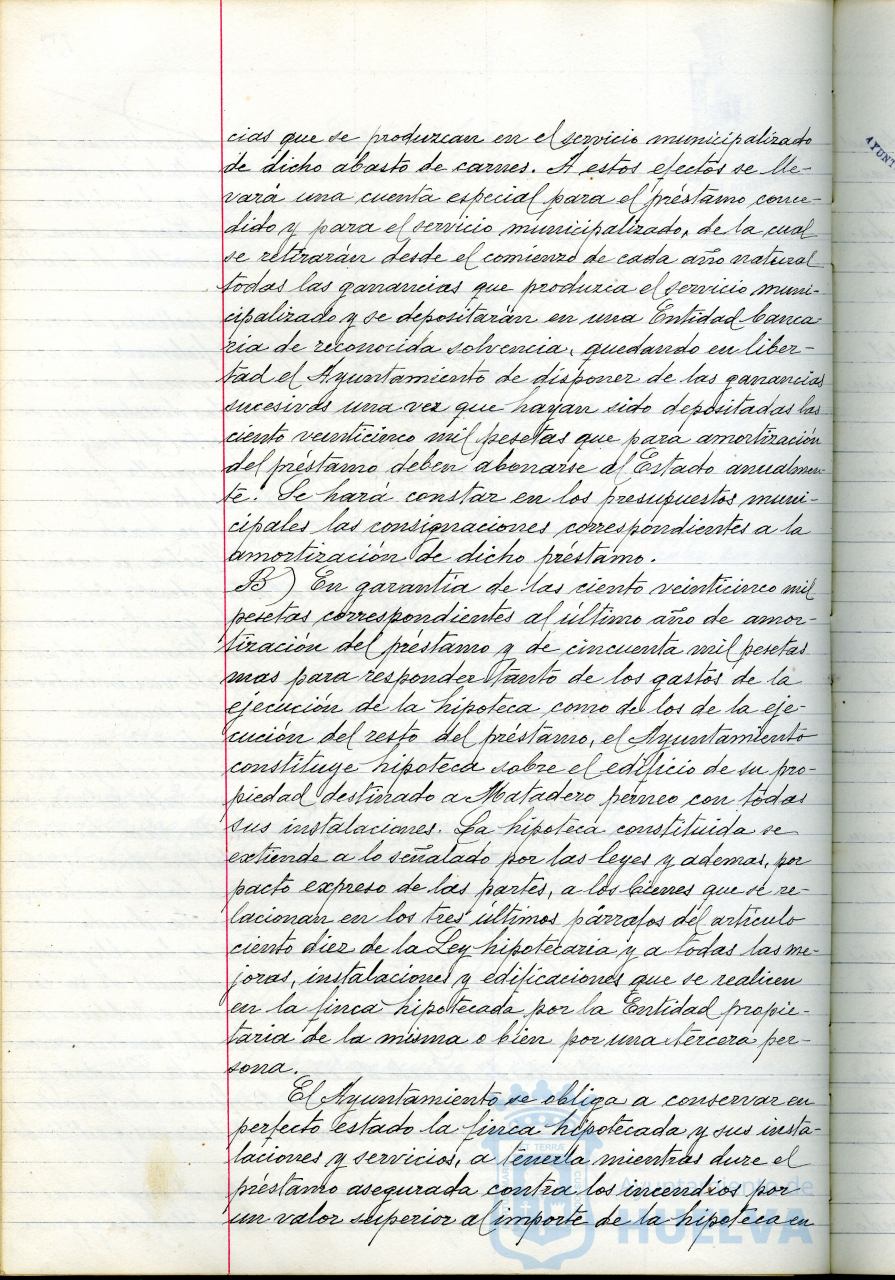 cias que se produzcan en el servicio municipalizado
de dicho abasto de carnes. A estos efectos se lle-
vará una cuenta especial para el préstamo conce-
dido y para el servicio municipalizado, de la cual
se retirarán desde el comienzo de cada año natural
todas las ganancias que produzca el servicio muni-
cipalizado y se depositarán en una Entidad banca-
ria de reconocida solvencia, quedando en liber-
tad el Ayuntamiento de disponer de las ganancias
sucesivas una vez que hayan sido depositadas las
ciento veinticinco mil pesetas que para amortización
del préstamo deben abonarse al Estado anualmen-
te. Se hará constar en los presupuestos muni-
cipales las consignaciones correspondientes a la
amortización de dicho préstamo.
B) En garantía de las ciento veinticinco mil
pesetas correspondientes al último año de amor-
tización del préstamo y de cincuenta mil pesetas
mas para responder tanto de los gastos de la
ejecución de la hipoteca como de los de la eje-
cución del resto del préstamo, el Ayuntamiento
constituye hipoteca sobre el edificio de su pro-
piedad destinado a Matadero perneo con todas
sus instalaciones. La hipoteca constituida se
extiende a lo señalado por las leyes y ademas, por
pacto expreso de las partes, a los bienes que se re-
lacionan en los tres últimos párrafos del artículo
ciento diez de la Ley hipotecaria y a todas las me-
joras, instalaciones y edificaciones que se realicen
en la finca hipotecada por la Entidad propie-
taria de la misma o bien por una tercera per-
sona.
El Ayuntamiento se obliga a conservar en
perfecto estado la finca hipotecada y sus insta-
laciones y servicios, a tenerla mientras dure el
préstamo asegurada contra los incendios por
un valor superior al importe de la hipoteca en
Ayuntamiento de
HUELVA